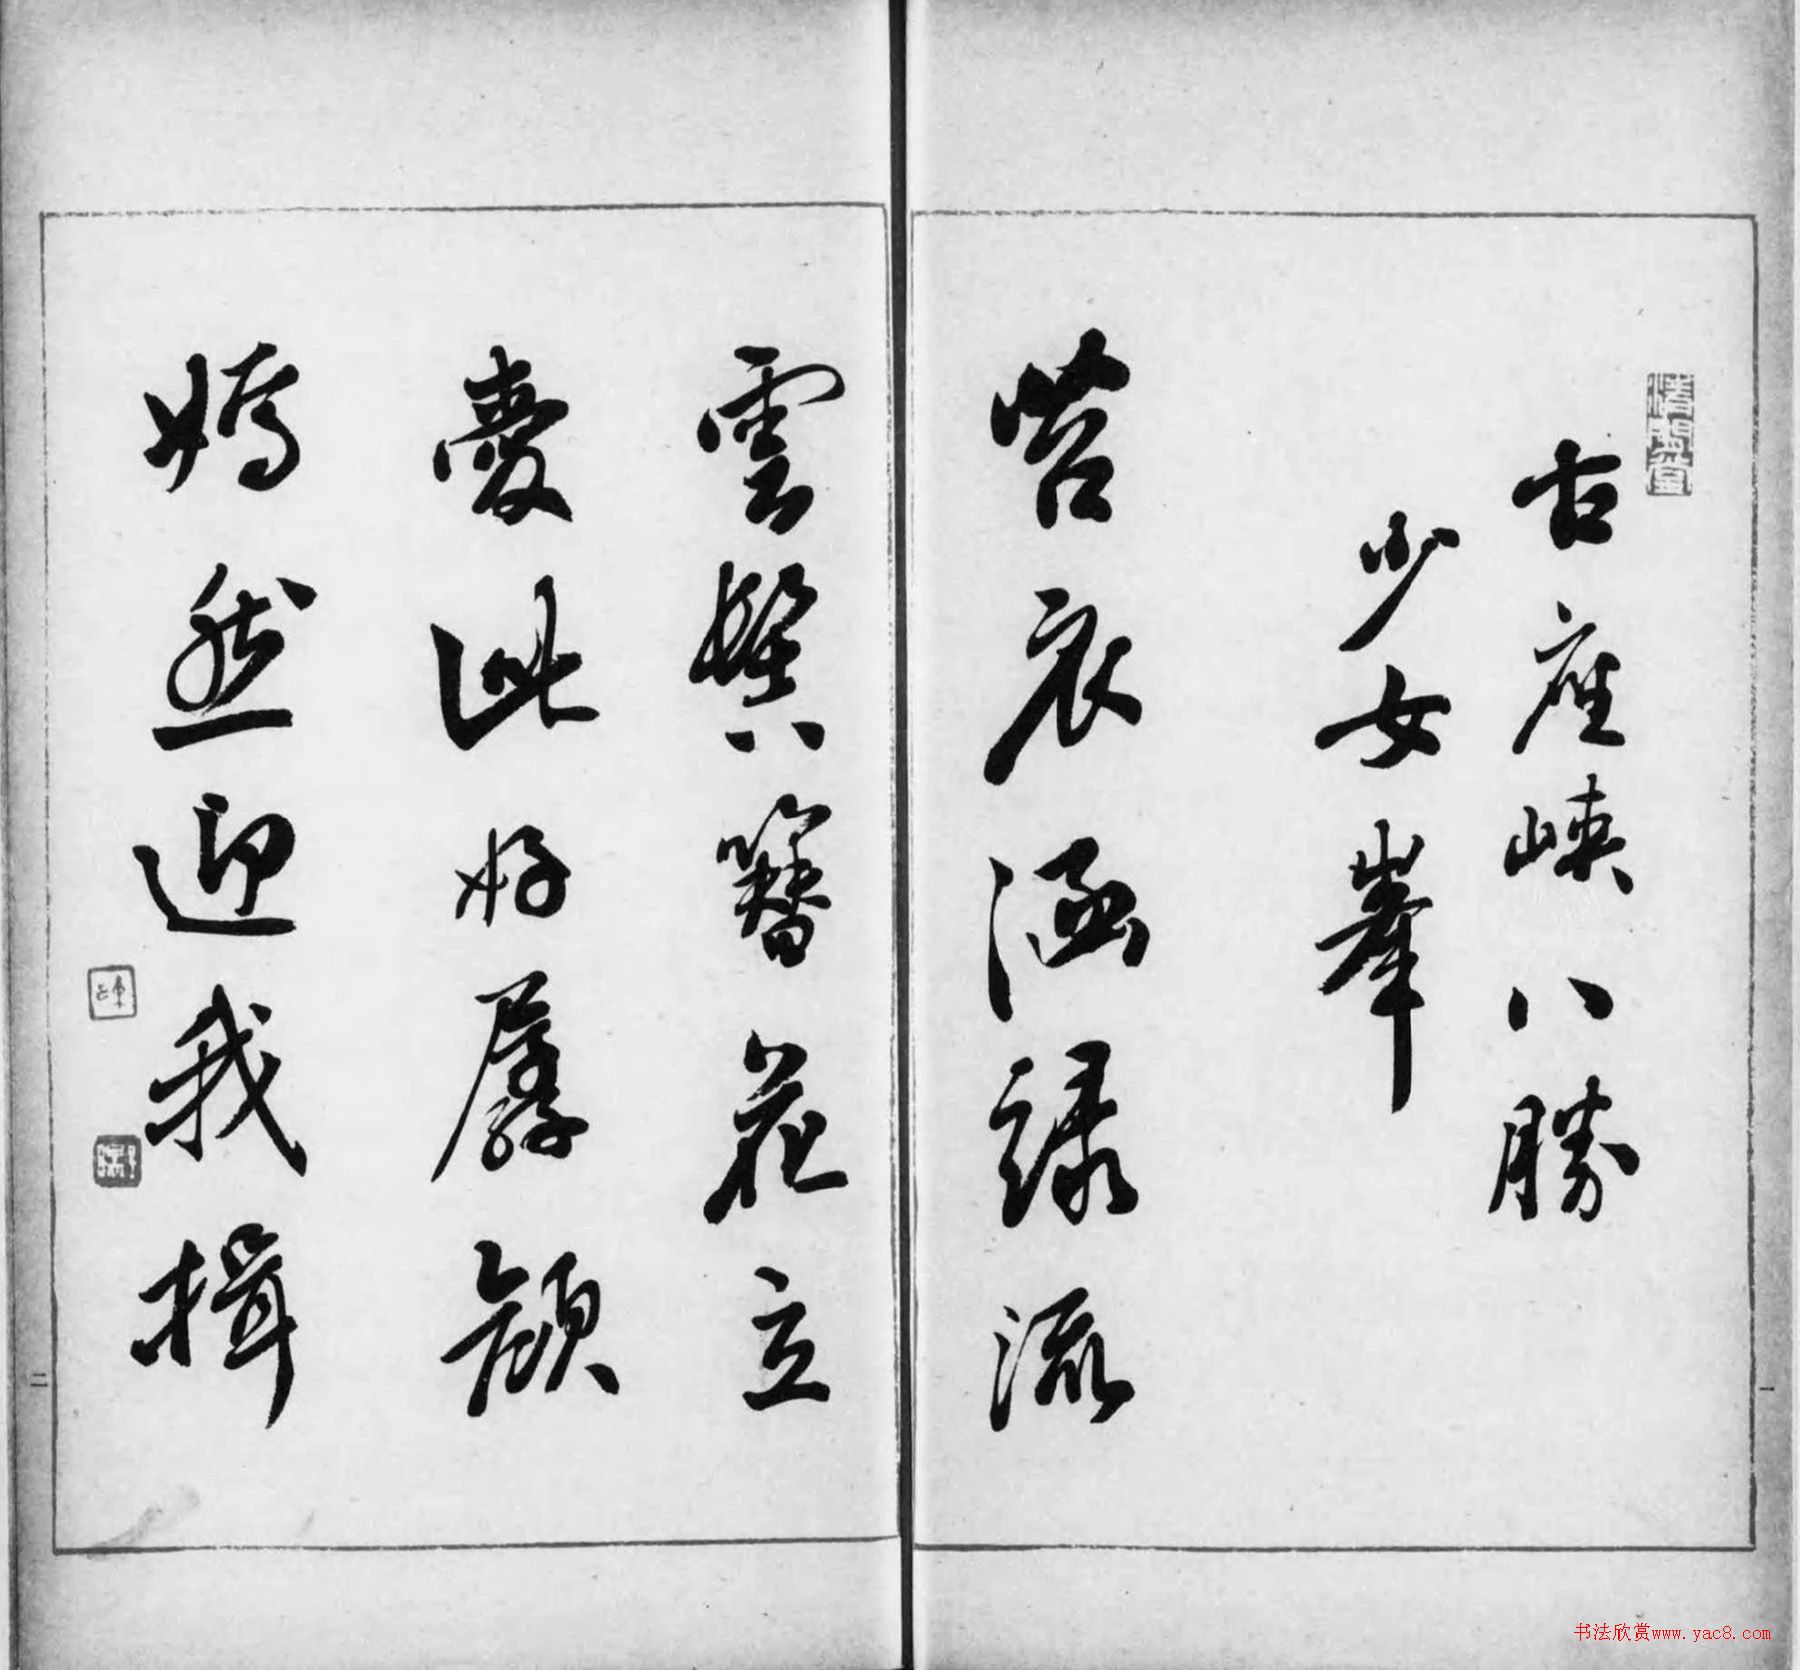 清閟堂
古座峡八勝
少女峯
苔衣涵緑流
雲鬟簪花立
愛此好孱顔
嫣然迎我揖
一
二
书法欣赏www.yac8.com